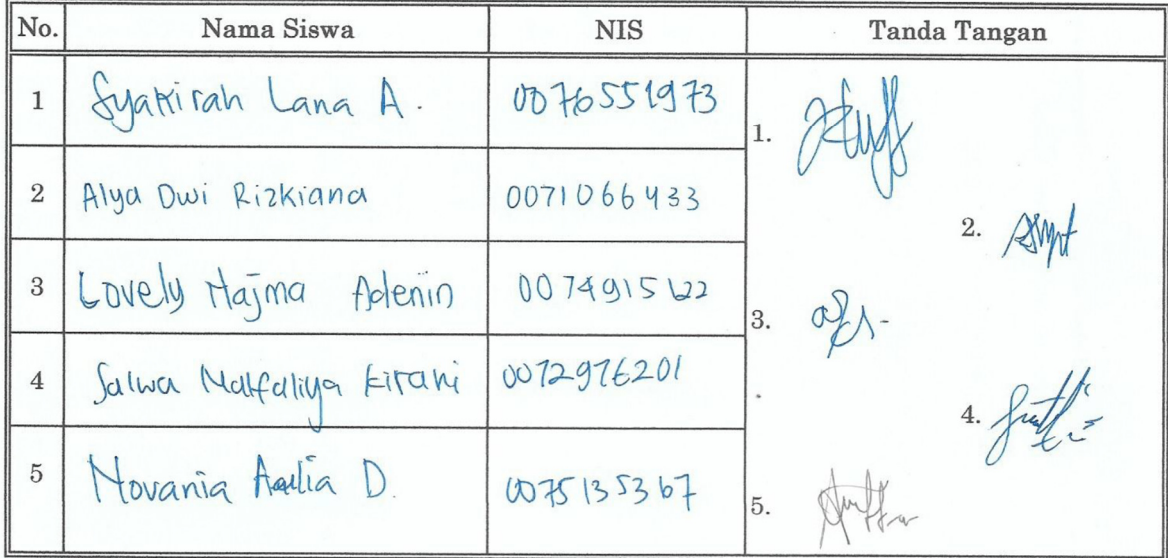 No. Nama Siswa NIS Tanda Tangan
1 Syakirah Lana A. 0076551973 1.
2 Alya Dwi Rizkiana 0071066433 2.
3 Lovely Najma Adenin 0074915122 3.
4 Salwa Nalfaliya Kirani 0072976201 4.
5 Novania Aulia D. 0075135367 5.